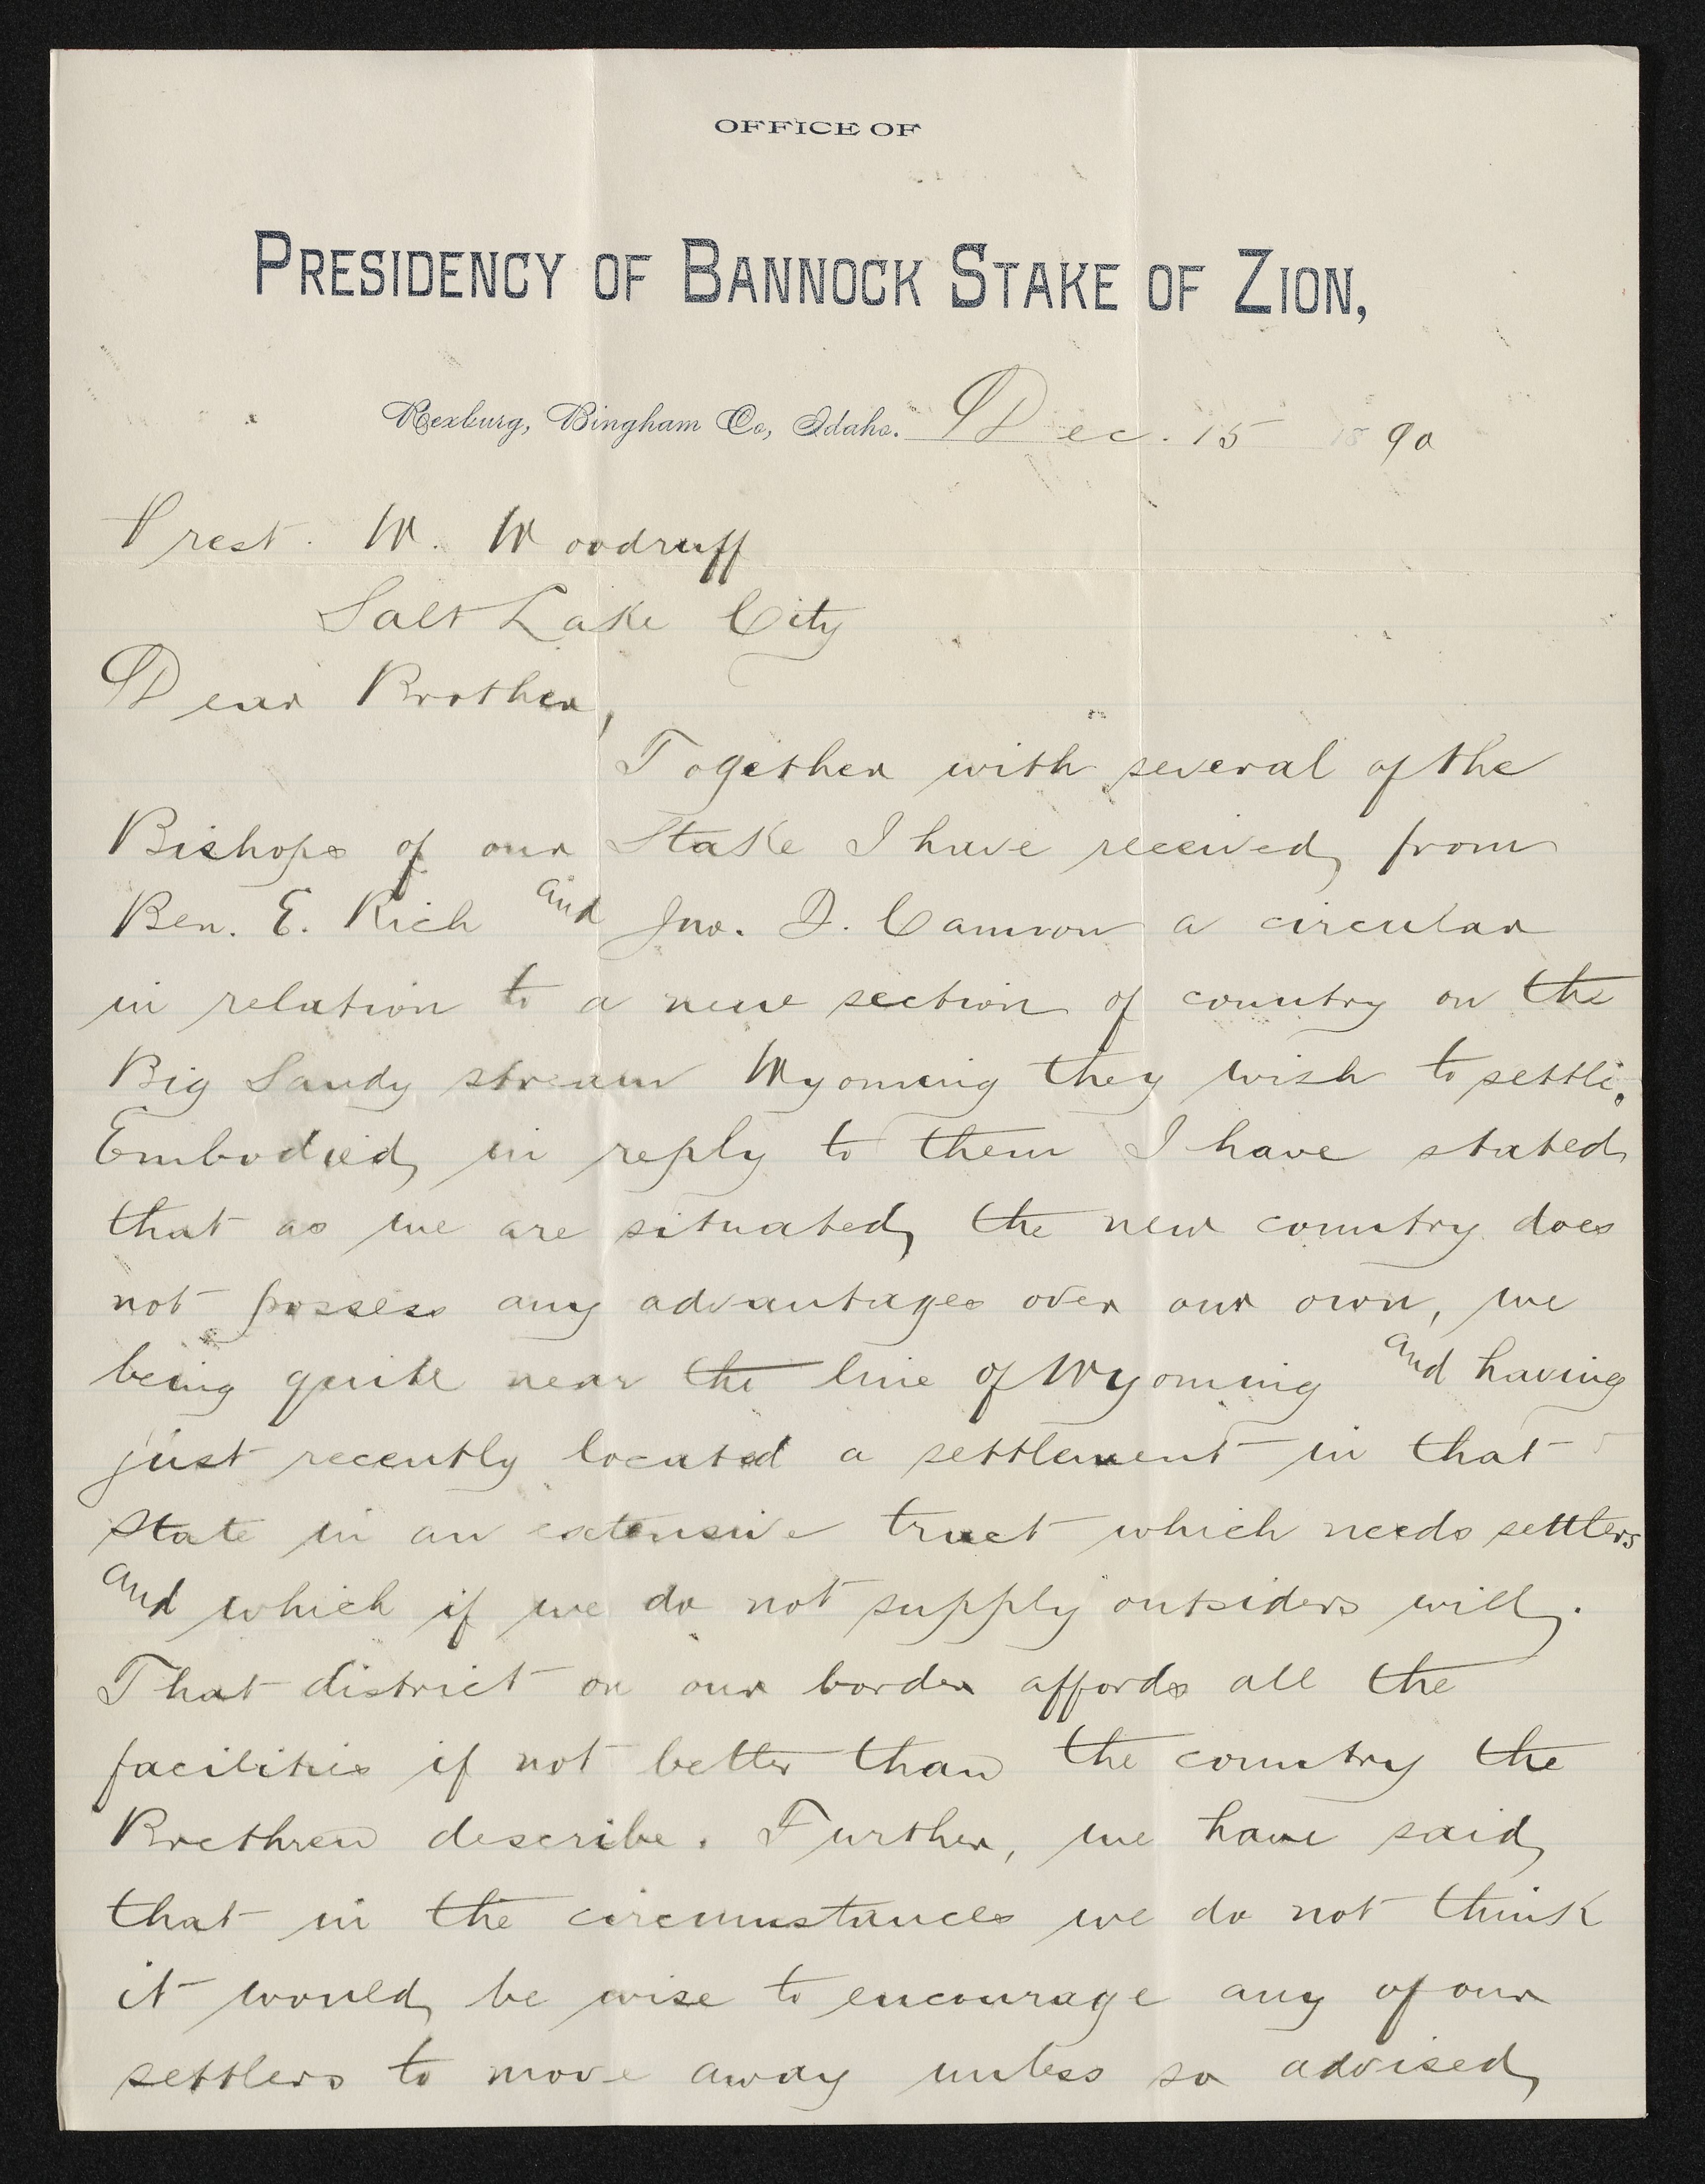 OFFICE OF
PRESIDENCY OF BANNOCK STAKE OF ZION,
Rexburg, Bingham Co, Idaho. Dec. 15 1890
Prest. W. Woodruff
Salt Lake City
Dear Brother,
Together with several of the
Bishops of our Stake I have received from
Ben. E. Rich and Jno. Q. Cannon a circular
in relation to a new section of country on the
Big Sandy stream Wyoming they wish to settle.
Embodied in reply to them I have stated
that as we are situated the new country does
not possess any advantages over our own, we
being quite near the line of Wyoming and having
just recently located a settlement in that
State in an extensive tract which needs settlers
and which if we do not supply outsiders will.
That district on our border affords all the
facilities if not better than the country the
Brethren describe. Further, we have said
that in the circumstances we do not think
it would be wise to encourage any of our
settlers to move away unless so advised